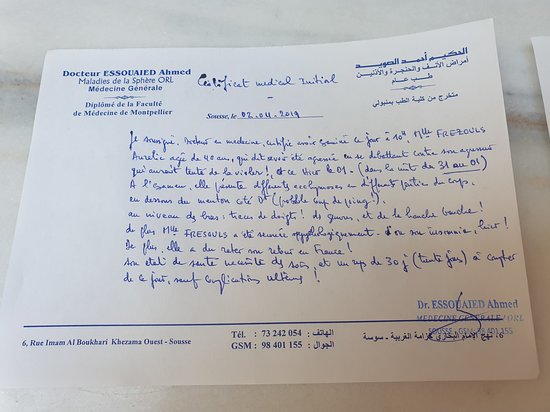 Docteur ESSOUAIED Ahmed
Maladies de la Sphère ORL
Médecine Générale
Diplômé de la Faculté
de Médecine de Montpellier
الحكيم أحمد الصويد
أمراض الأنف والحنجرة والأذنين
طب عام
متخرج من كلية الطب بمنبولي
Certificat medical Initial
Sousse, le 02.04.2019
Je soussigné, Docteur en medecine, certifie avoir examiné ce jour à 10H, Mlle FREZOULS
Aurelie agée de 40 ans, qui dit avoir été agressée en se debattant contre son agresseur
qui aurait tenté de la violer! et ce Hier le 01. (dans la nuit du 31 au 01)
A l'examen, elle présente différents ecchymoses en différent parties du corps,
en dessous du menton côté Dt (possible coup de poing!).
au niveau des bras: traces de doigts! de genoux, et de la hanche gauche!
de plus Mlle FRESOULS a été secouée psychologiquement - d'ou son insomnie
De plus, elle a du rater son retour en France!
son etat de santé necessite des soins et un repos de 30 j (trente jours) à compter
de ce jour, sauf complications ulterieures!
Dr. ESSOUAIED Ahmed
MEDECINE GENERALE / ORL
SOUSSE - GSM: 98 401 155
6, Rue Imam Al Boukhari Khezama Ouest - Sousse
Tél. : 73 242 054 : الهاتف
GSM : 98 401 155 : الجوال
6، نهج الإمام البخاري خزامة الغربية - سوسة